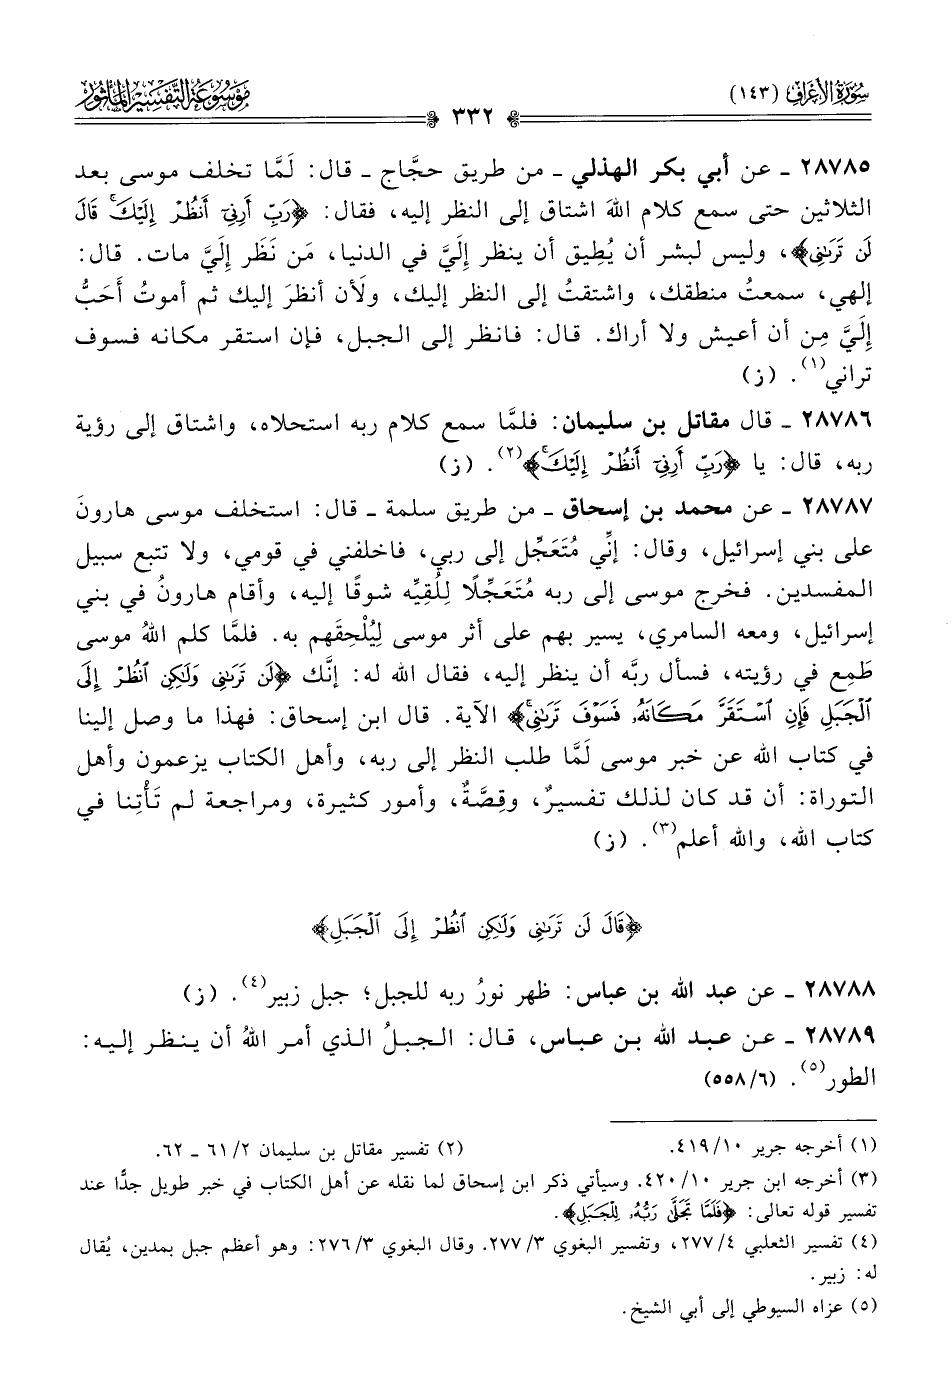 سُورَةُ الأَعْرَافِ (١٤٣)
مَوْسُوعَة التَّفْسِيرِ المَأْثُور
٣٣٢
٢٨٧٨٥ ـ عن أبي بكر الهذلي ـ من طريق حجَّاج ـ قال: لَمَّا تخلف موسى بعد
الثلاثين حتى سمع كلام اللهَ اشتاق إلى النظر إليه، فقال: ﴿رَبِّ أَرِنِيٓ أَنظُرۡ إِلَيۡكَۚ قَالَ
لَن تَرَىٰنِي﴾، وليس لبشر أن يُطِيق أن ينظر إلَيَّ في الدنيا، مَن نَظَر إِلَيَّ مات. قال:
إلهي، سمعتُ منطقك، واشتقتُ إلى النظر إليك، ولَأن أنظرَ إليك ثم أموتُ أَحَبُّ
إِلَيَّ مِن أن أعيش ولا أراك. قال: فانظر إلى الجبل، فإن استقر مكانه فسوف
تراني(١). (ز)
٢٨٧٨٦ ـ قال مقاتل بن سليمان: فلمَّا سمع كلام ربه استحلاه، واشتاق إلى رؤية
ربه، قال: يا ﴿رَبِّ أَرِنِيٓ أَنظُرۡ إِلَيۡكَۚ﴾(٢). (ز)
٢٨٧٨٧ ـ عن محمد بن إسحاق ـ من طريق سلمة ـ قال: استخلف موسى هارونَ
على بني إسرائيل، وقال: إنِّي مُتَعَجِّل إلى ربي، فاخلفني في قومي، ولا تتبع سبيل
المفسدين. فخرج موسى إلى ربه مُتَعَجِّلًا لِلُقِيِّه شوقًا إليه، وأقام هارونُ في بني
إسرائيل، ومعه السامري، يسير بهم على أثر موسى لِيُلْحِقَهم به. فلمَّا كلم اللهُ موسى
طَمِع في رؤيته، فسأل ربَّه أن ينظر إليه، فقال الله له: إنَّك ﴿لَن تَرَىٰنِي وَلَٰكِنِ ٱنظُرۡ إِلَى
ٱلۡجَبَلِ فَإِنِ ٱسۡتَقَرَّ مَكَانَهُۥ فَسَوۡفَ تَرَىٰنِيۚ﴾ الآية. قال ابن إسحاق: فهذا ما وصل إلينا
في كتاب الله عن خبر موسى لَمَّا طلب النظر إلى ربه، وأهل الكتاب يزعمون وأهل
التوراة: أن قد كان لذلك تفسيرٌ، وقِصَّةٌ، وأمور كثيرة، ومراجعة لم تَأْتِنا في
كتاب الله، والله أعلم(٣). (ز)
﴿قَالَ لَن تَرَىٰنِي وَلَٰكِنِ ٱنظُرۡ إِلَى ٱلۡجَبَلِ﴾
٢٨٧٨٨ ـ عن عبد الله بن عباس: ظهر نورُ ربه للجبل؛ جبل زبير(٤). (ز)
٢٨٧٨٩ ـ عن عبد الله بن عباس، قال: الجبلُ الذي أمر اللهُ أن ينظر إليه:
الطور(٥). (٦/ ٥٥٨)
(١) أخرجه جرير ١٠/ ٤١٩. (٢) تفسير مقاتل بن سليمان ٢/ ٦١ ـ ٦٢.
(٣) أخرجه ابن جرير ١٠/ ٤٢٠. وسيأتي ذكر ابن إسحاق لما نقله عن أهل الكتاب في خبر طويل جدًّا عند
تفسير قوله تعالى: ﴿فَلَمَّا تَجَلَّىٰ رَبُّهُۥ لِلۡجَبَلِ﴾.
(٤) تفسير الثعلبي ٤/ ٢٧٧، وتفسير البغوي ٣/ ٢٧٧. وقال البغوي ٣/ ٢٧٦: وهو أعظم جبل بمدين، يُقال
له: زبير.
(٥) عزاه السيوطي إلى أبي الشيخ.